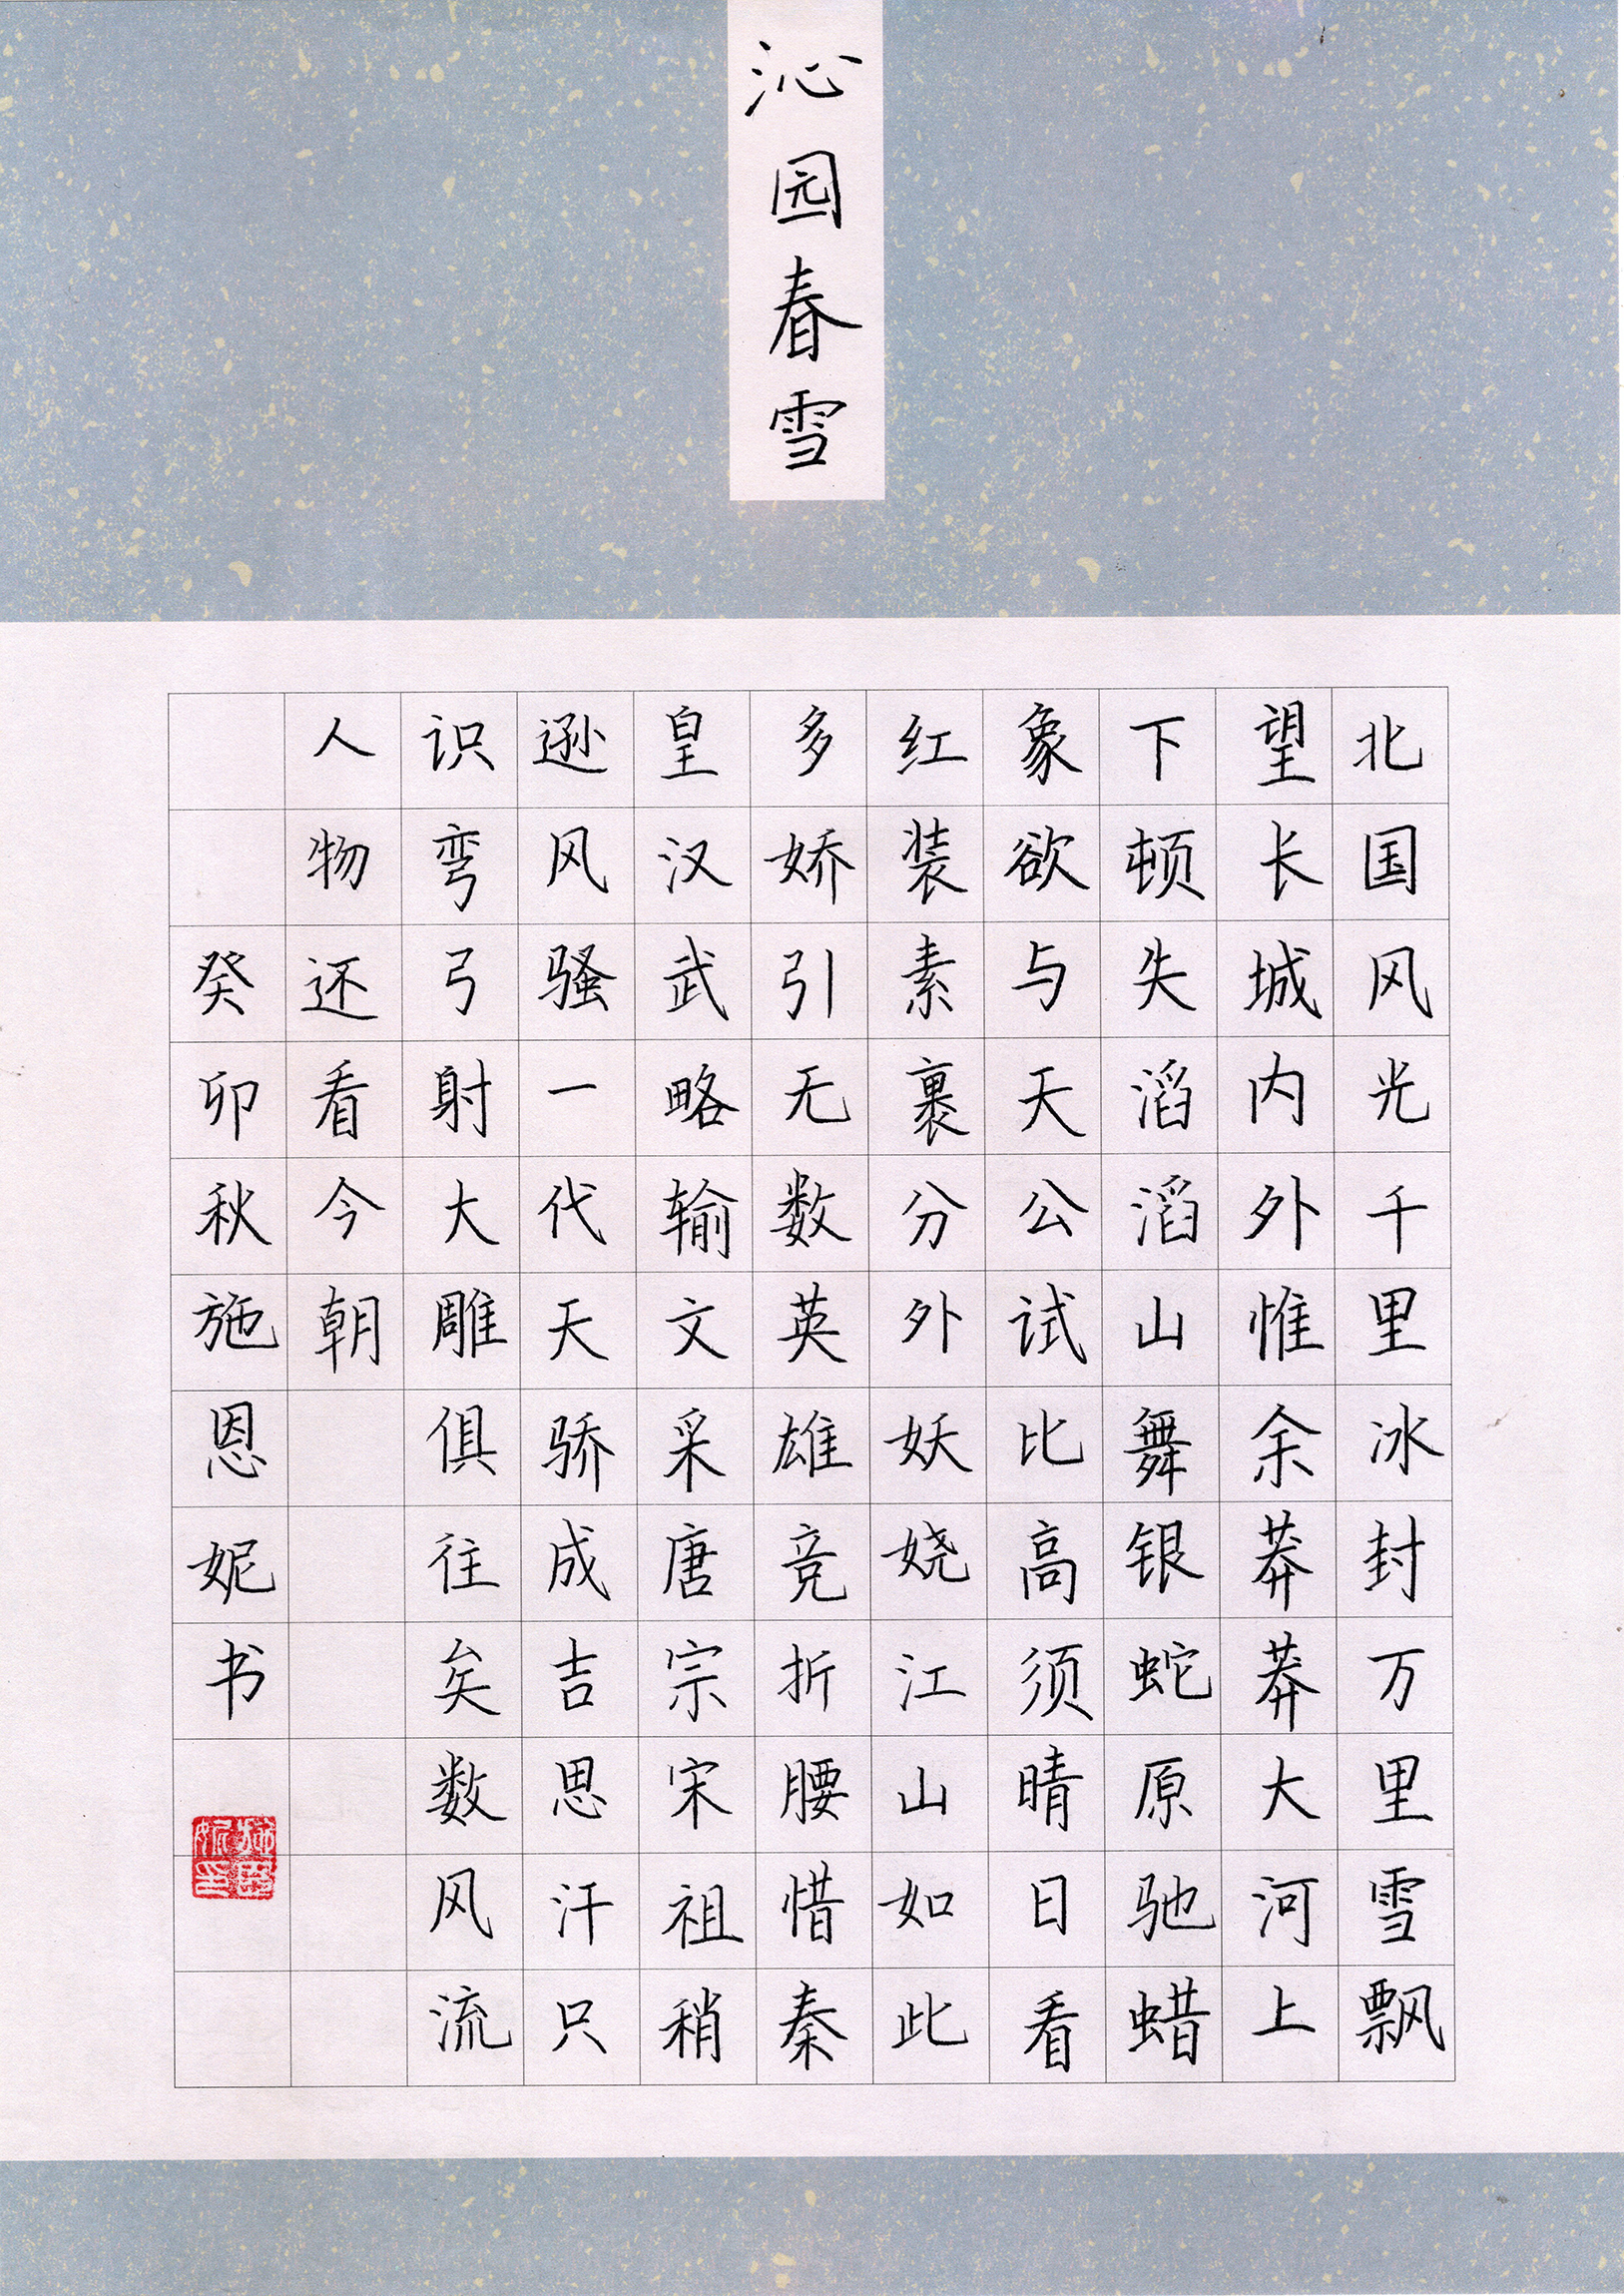 沁园春雪
北国风光千里冰封万里雪飘
望长城内外惟余莽莽大河上
下顿失滔滔山舞银蛇原驰蜡
象欲与天公试比高须晴日看
红装素裹分外妖娆江山如此
多娇引无数英雄竞折腰惜秦
皇汉武略输文采唐宗宋祖稍
逊风骚一代天骄成吉思汗只
识弯弓射大雕俱往矣数风流
人物还看今朝
癸卯秋施恩妮书
施恩妮印